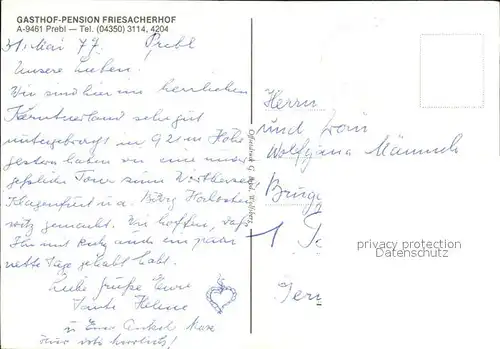 GASTHOF-PENSION FRIESACHERHOF
A-9461 Prebl — Tel. (04350) 3114, 4204
31. Mai 77. Prebl
Unsere Lieben!
Wir sind hier im herrlichen
Kärntnerland sehr gut
untergebracht in 920 m Höhe
gestern haben wir eine
Tour zum Wörthersee
Klagenfurt u. a. Burg Hochoster
witz gemacht. Wir hoffen, daß
Ihr mit Rudy auch ein paar
nette Tage gehabt habt.
Liebe Grüße Eure
Tante Helene
u Euer Onkel Max
Herrn
und Frau
Wolfgang
1
privacy protection
Datenschutz